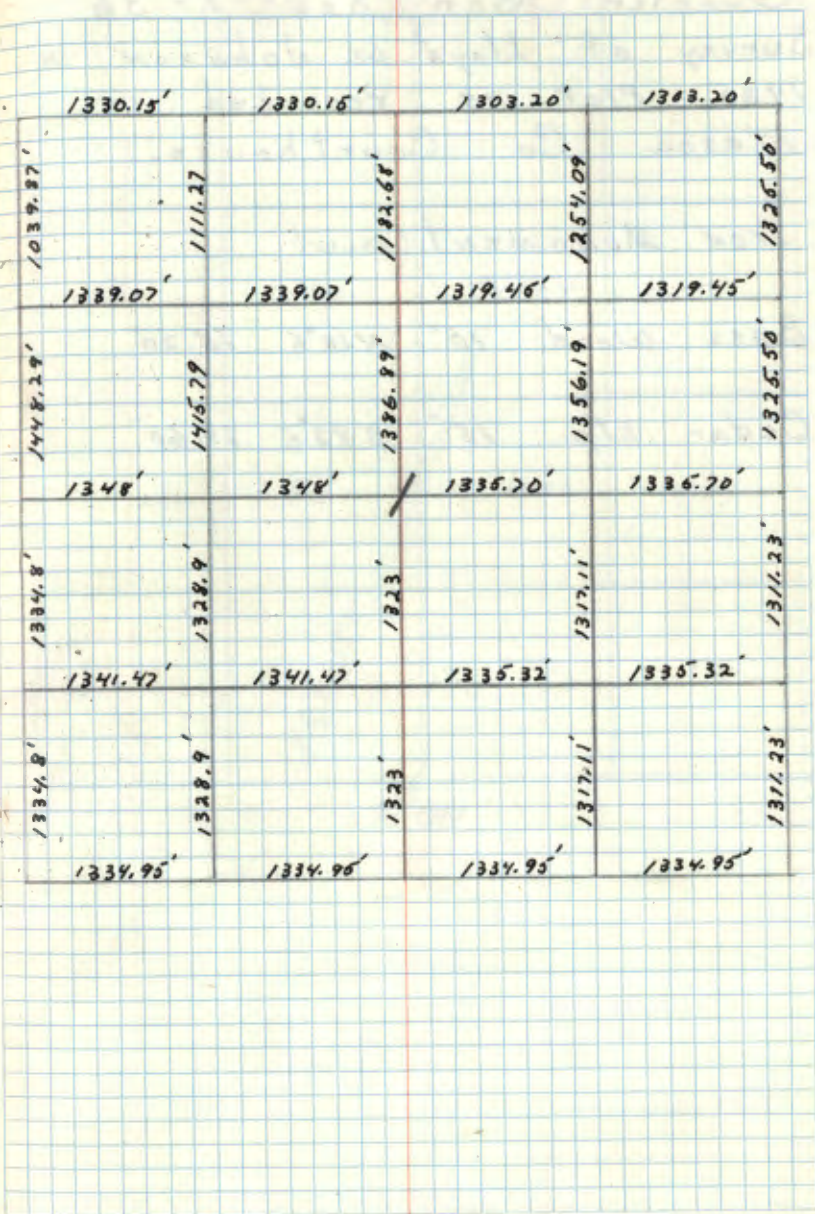 1330.15' 1330.15' 1303.20' 1303.20'
1039.87' 1111.27 1182.68' 1254.09' 1325.50'
1339.07' 1339.07' 1319.46' 1319.45'
1448.29' 1415.79 1386.89' 1356.19' 1325.50'
1348' 1348' 1335.70' 1335.70'
1334.8' 1328.9' 1323' 1317.11' 1311.23'
1341.47' 1341.47' 1335.32' 1335.32'
1334.8' 1328.9' 1323' 1317.11' 1311.23'
1334.95' 1334.95' 1334.95' 1334.95'